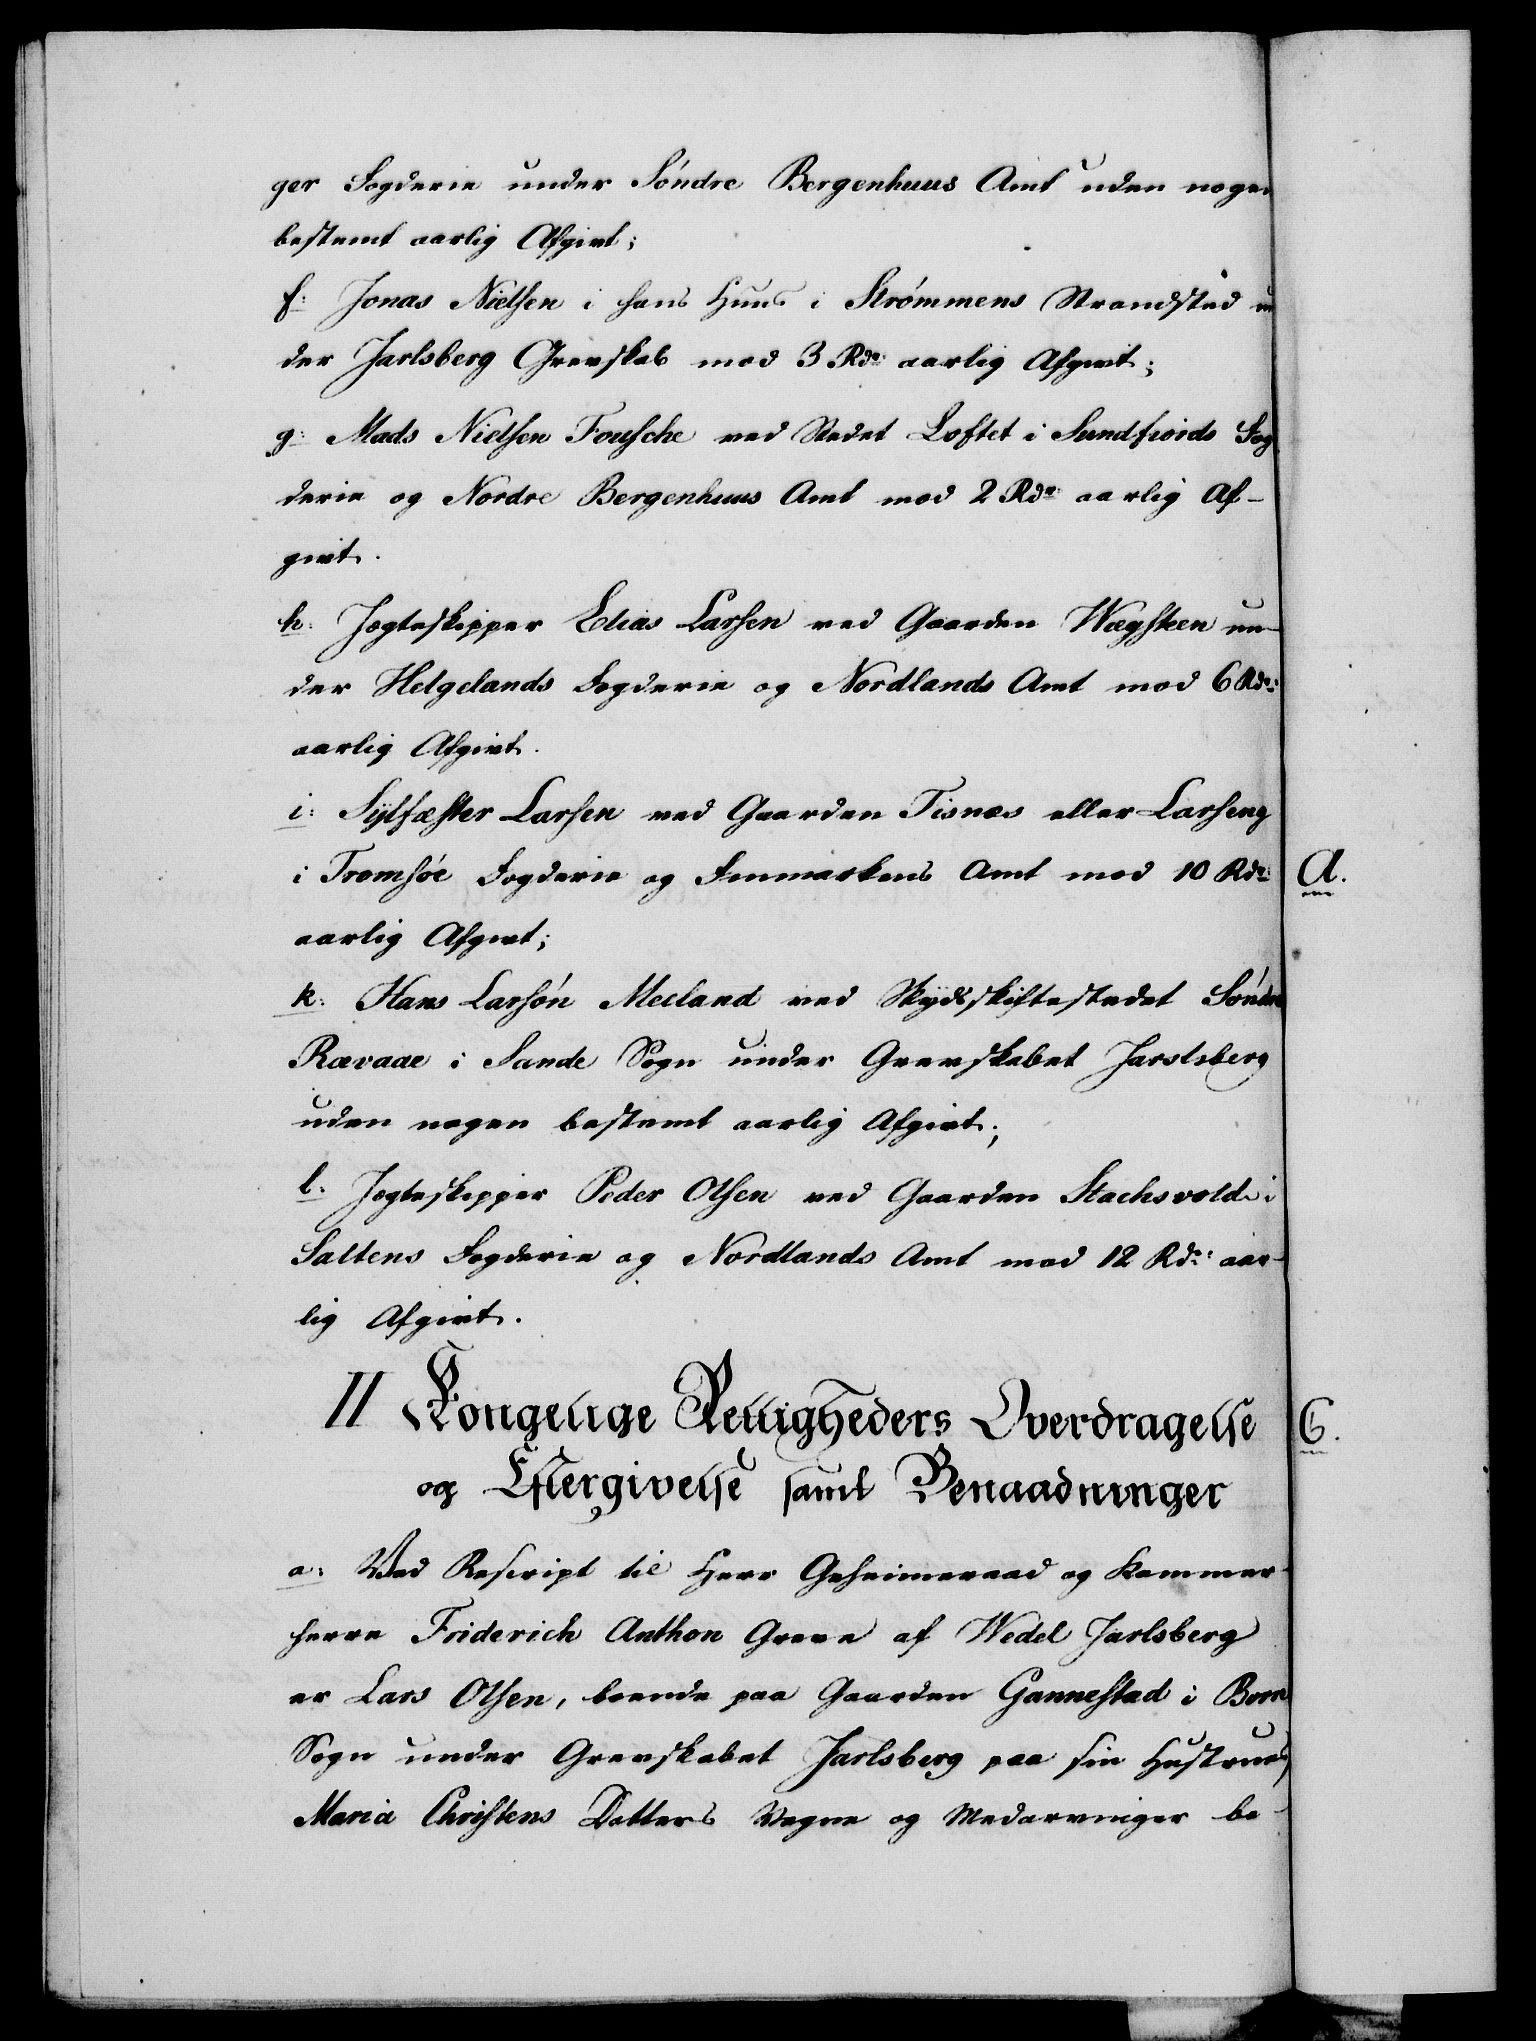 ger Fogderie under Söndre Bergenhuus Amt uden nogen
bestemt aarlig Afgivt;
f: Jonas Nielsen i hans Huus i Strømmens Strandsted un
der Jarlsberg Grevskab mod 3 Rdr: aarlig Afgivt;
g: Mads Nielsen Fousche ved Stedet Loftet i Sundfiords Fog
derie og Nordre Bergenhuus Amt mod 2 Rdr: aarlig Af-
givt.
h: Jægteskipper Elias Larsen ved Gaarden Wægsteen un-
der Helgelands Fogderie og Nordlands Amt mod 6 Rdr:
aarlig Afgivt.
i: Sylfæster Larsen ved Gaarden Tisnæs eller Larseng
i Tromsöe Fogderie og Finmarkens Amt mod 10 Rdr:
aarlig Afgivt;
k: Hans Larsön Meeland ved Skydsskiftestedet Söndre
Rævaae i Sande Sogn under Grevskabet Jarslsberg
uden nogen bestemt aarlig Afgivt;
l: Jægteskipper Peder Olsen ved Gaarden Stachsvold i
Saltens Fogderie og Nordlands Amt mod 12 Rdr: aar-
lig Afgivt.
II Kongelige Rettigheders Overdragelse
og Eftergivelse samt Benaadninger
a: Ved Rescript til Herr Geheimeraad og Kammer-
herre Friderich Anthon Greve af Wedel Jarlsberg
er Lars Olsen, boende paa Gaarden Gannestad i Borre
Sogn under Grevskabet Jarlsberg paa sin Hustrues
Maria Christens Datters Vegne og Medarvinger be-
A.
C.